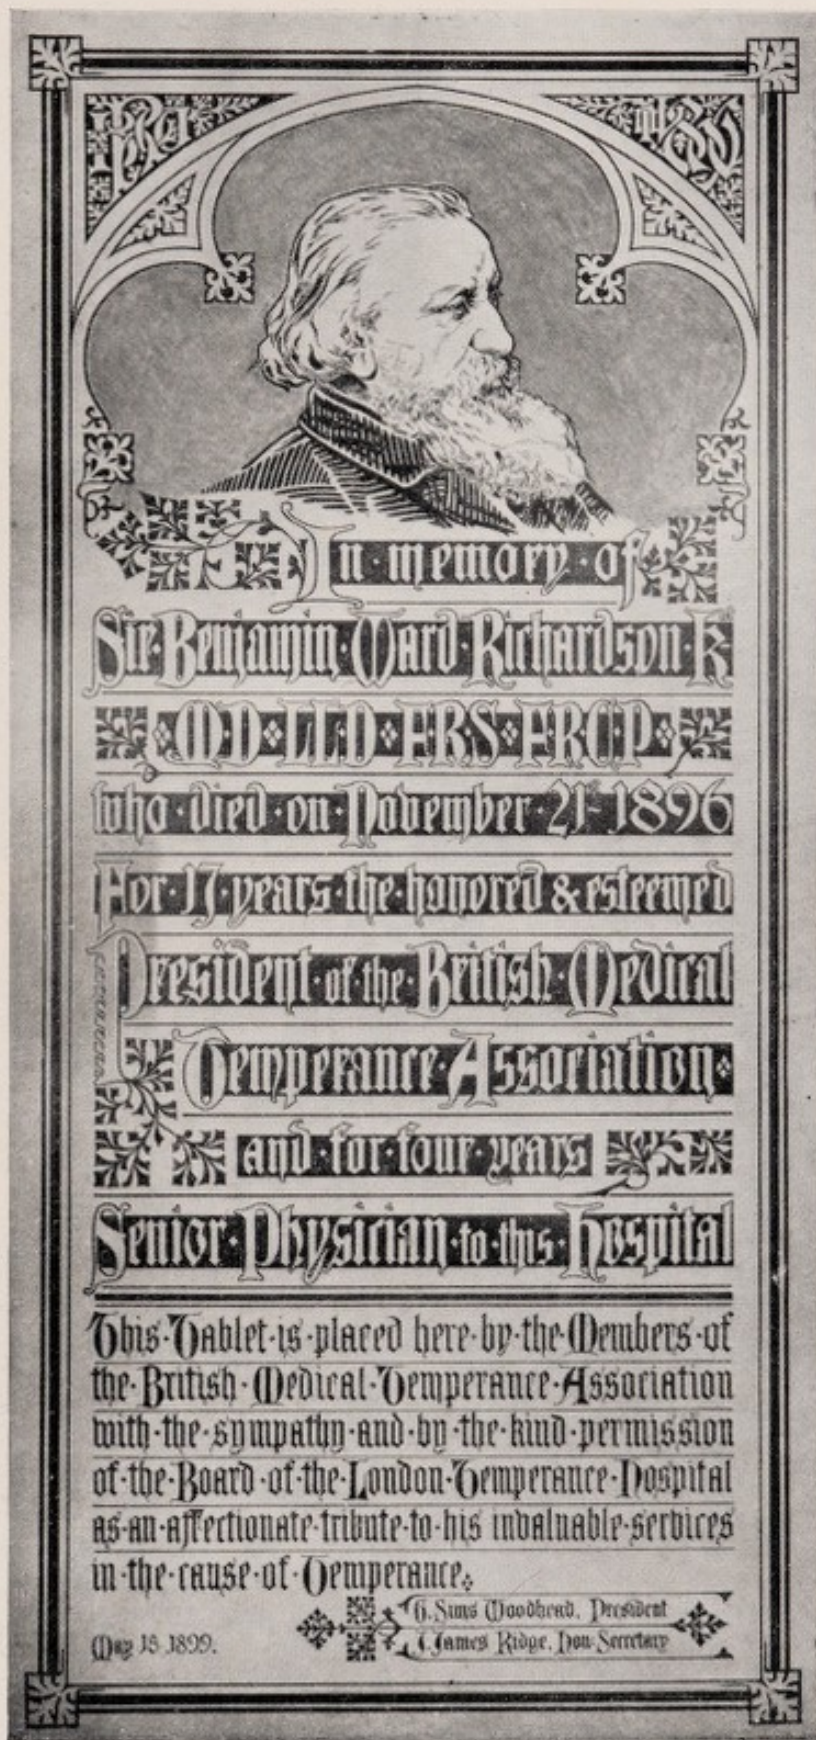 In · memory · of
Sir · Benjamin · Ward · Richardson · Kt
MD · LLD · FRS · FRCP
who · died · on · November · 21st · 1896
For · 17 · years · the · honored & esteemed
President · of · the · British · Medical
Temperance · Association ·
and · for · four · years
Senior · Physician · to · this · Hospital
This · Tablet · is · placed here · by · the · Members · of
the · British · Medical · Temperance · Association
with · the · sympathy · and · by · the · kind · permission
of · the · Board · of · the · London · Temperance · Hospital
as · an · affectionate · tribute · to · his invaluable · services
in · the · cause · of · Temperance
G. Sims Woodhead, President
J. James Ridge, Hon Secretary
May 18 1899.